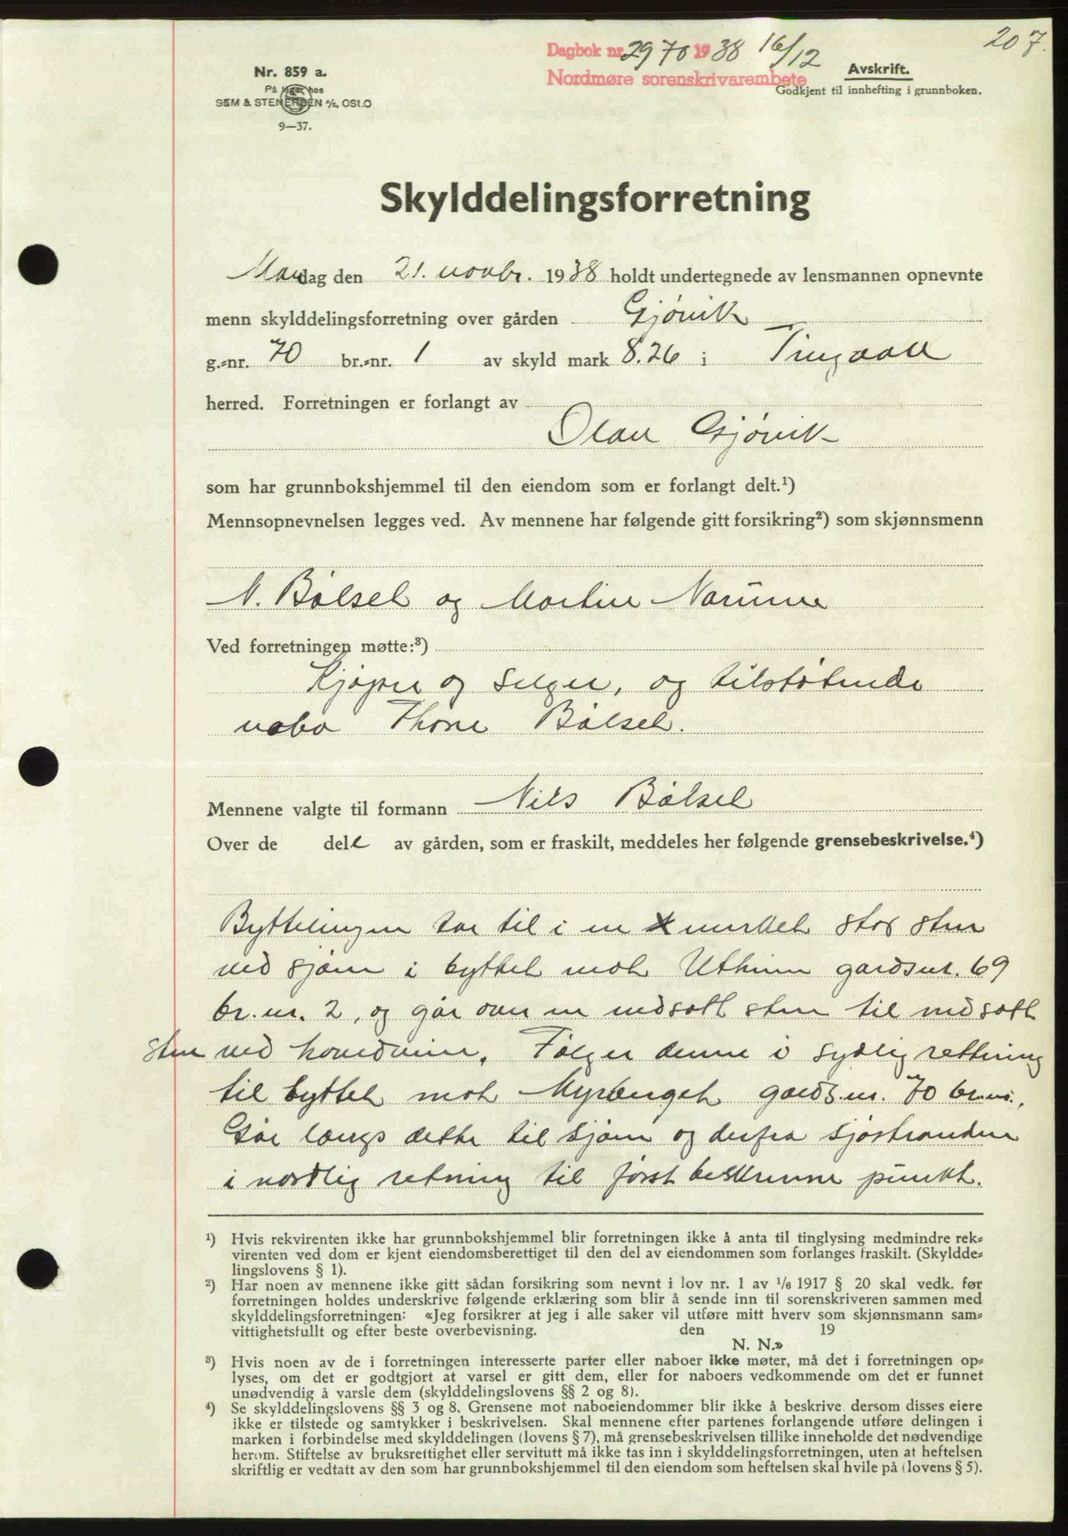 207.
Dagbok nr. 2970 1938 16/12
Nordmøre sorenskrivarembete
Nr. 859 a.
På lager hos
SEM & STENERSEN A/S, OSLO
9—37.
Avskrift.
Godkjent til innhefting i grunnboken.
Skylddelingsforretning
Mandag den 21. novbr. 1938 holdt undertegnede av lensmannen opnevnte
menn skylddelingsforretning over gården Gjøvik
g.-nr. 70 br.-nr. 1 av skyld mark 8.26 i Tingvoll
herred. Forretningen er forlangt av
Olav Gjøvik
som har grunnbokshjemmel til den eiendom som er forlangt delt.¹)
Mennsopnevnelsen legges ved. Av mennene har følgende gitt forsikring²) som skjønnsmenn
N. Bølsel og Martin
Ved forretningen møtte:³)
Kjøper og selger, og tilstøtende
nabo Thore Bølsel.
Mennene valgte til formann Nils Bølsel
Over de dele av gården, som er fraskilt, meddeles her følgende grensebeskrivelse.⁴)
Byttelingen tar til i en X merket stor sten
ved sjøen i byttet mot Utheim gardsnr. 69
br.nr. 2, og går over en nedsatt sten til nedsatt
sten ved hovedveien. Følger denne i sydlig rettning
til byttet mot Myrenget gards.nr. 70 br.nr.,
Går langs dette til sjøen og derfra sjøstranden
i nordlig retning til først beskrevne punkt.
¹) Hvis rekvirenten ikke har grunnbokshjemmel blir forretningen ikke å anta til tinglysing medmindre rek-
virenten ved dom er kjent eiendomsberettiget til den del av eiendommen som forlanges fraskilt. (Skyldde-
lingslovens § 1).
²) Har noen av mennene ikke gitt sådan forsikring som nevnt i lov nr. 1 av ¹/₆ 1917 § 20 skal vedk. før
forretningen holdes underskrive følgende erklæring som blir å sende inn til sorenskriveren sammen med
skylddelingsforretningen: «Jeg forsikrer at jeg i alle saker vil utføre mitt hverv som skjønnsmann sam-
vittighetsfullt og efter beste overbevisning. den 19
N. N.»
³) Hvis noen av de i forretningen interesserte parter eller naboer ikke møter, må det i forretningen op-
lyses, om det er godtgjort at varsel er gitt dem, eller for naboers vedkommende om det er funnet
unødvendig å varsle dem (skylddelingslovens §§ 2 og 8).
⁴) Se skylddelingslovens §§ 3 og 8. Grensene mot naboeiendommer blir ikke å beskrive dersom disses eiere
ikke er tilstede og samtykker i beskrivelsen. Skal mennene efter partenes forlangende utføre delingen i
marken i forbindelse med skylddelingen (lovens § 7), må grensebeskrivelsen tillike inneholde det nødvendige
herom. Stiftelse av bruksrettighet eller servitutt må ikke tas inn i skylddelingsforretningen, uten at heftelsen
skriftlig er vedtatt av den som har grunnbokshjemmel til den eiendom som heftelsen skal hvile på (lovens § 5).